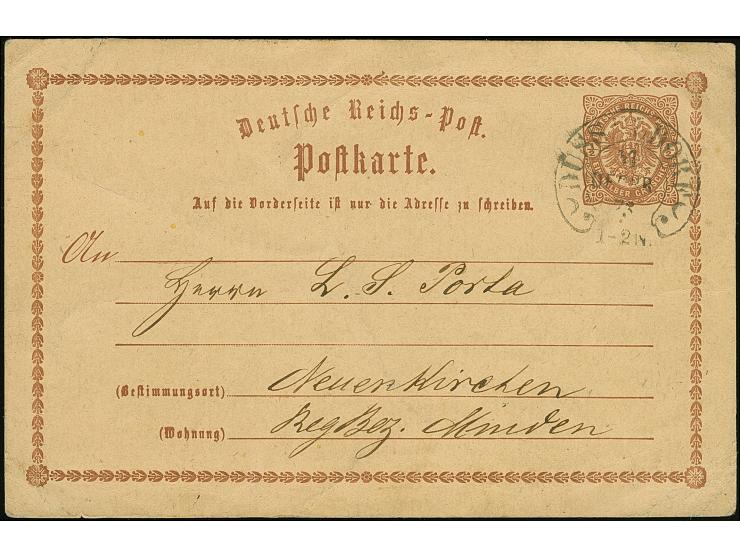 Deutsche Reichs-Post.
Postkarte.
Auf die Vorderseite ist nur die Adresse zu schreiben.
DEUTSCHE REICHS
17
73
1-2 N.
An
Herrn L. S. Porta
(Bestimmungsort) Neuenkirchen
(Wohnung) Reg Bez. Minden